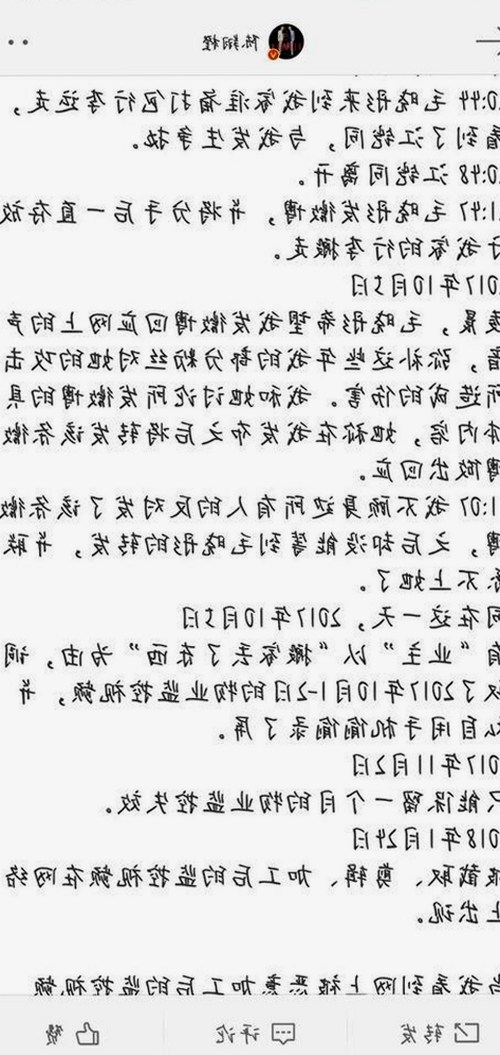 陈翔橙
0:44 毛晓彤来到我家准备打包行李运走，
看到了江铠同，与我发生争执。
0:48 江铠同离开。
1:47 毛晓彤发微博，并将分手后一直存放
于我家的行李搬走。
017年10月5日
凌晨，毛晓彤希望我发微博回应网上的声
音，弥补这些年我的部分粉丝对她的攻击
所造成的伤害。我和她讨论所发微博的具
体内容，她称在我发布之后将转发该条微
博做出回应。
1:07 我不顾身边所有人的反对发了该条微
博，之后却没能等到毛晓彤的转发，并联
系不上她了。
同在这一天，2017年10月5日
有“业主”以“搬家丢了东西”为由，调
取了2017年10月1-2日的物业监控视频，并
私自用手机偷偷录了屏。
017年11月2日
只能保留一个月的物业监控失效。
018年1月24日
被截取、剪辑、加工后的监控视频在网络
上出现。
当我看到网上被恶意加工后的监控视频
转发 评论 赞